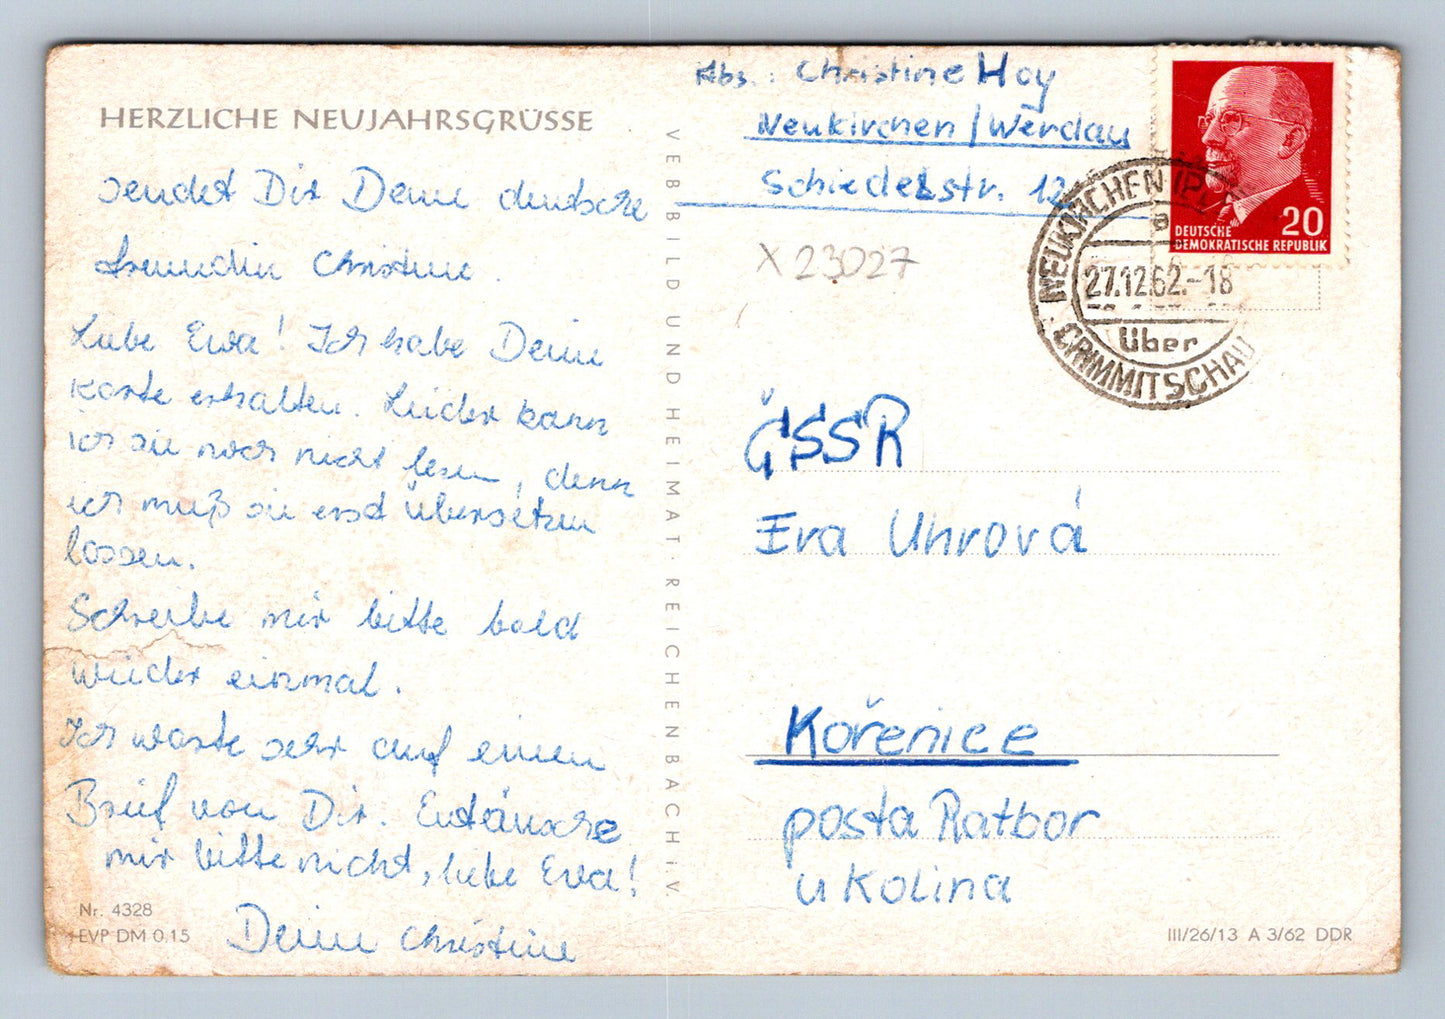 HERZLICHE NEUJAHRSGRÜSSE
sendet Dir Deine deutsche
Freundin Christine.
Liebe Ewa! Ich habe Deine
Karte erhalten. Leider kann
ich sie noch nicht lesen, denn
ich muß sie erst übersetzen
lassen.
Schreibe mir bitte bald
wieder einmal.
Ich warte sehr auf einen
Brief von Dir. Entäusche
mir bitte nicht, liebe Ewa!
Deine Christine
Nr. 4328
EVP DM 0,15
VEB BILD UND HEIMAT · REICHENBACH i.V.
Abs.: Christine Hoy
Neukirchen/Werdau
Schiedelstr. 12
X 23027
DEUTSCHE
DEMOKRATISCHE REPUBLIK
20
NEUKIRCHEN
a
27.12.62.-18
über
CRIMMITSCHAU
ČSSR
Eva Uhrová
Kořenice
posta Ratbor
u Kolina
III/26/13 A 3/62 DDR